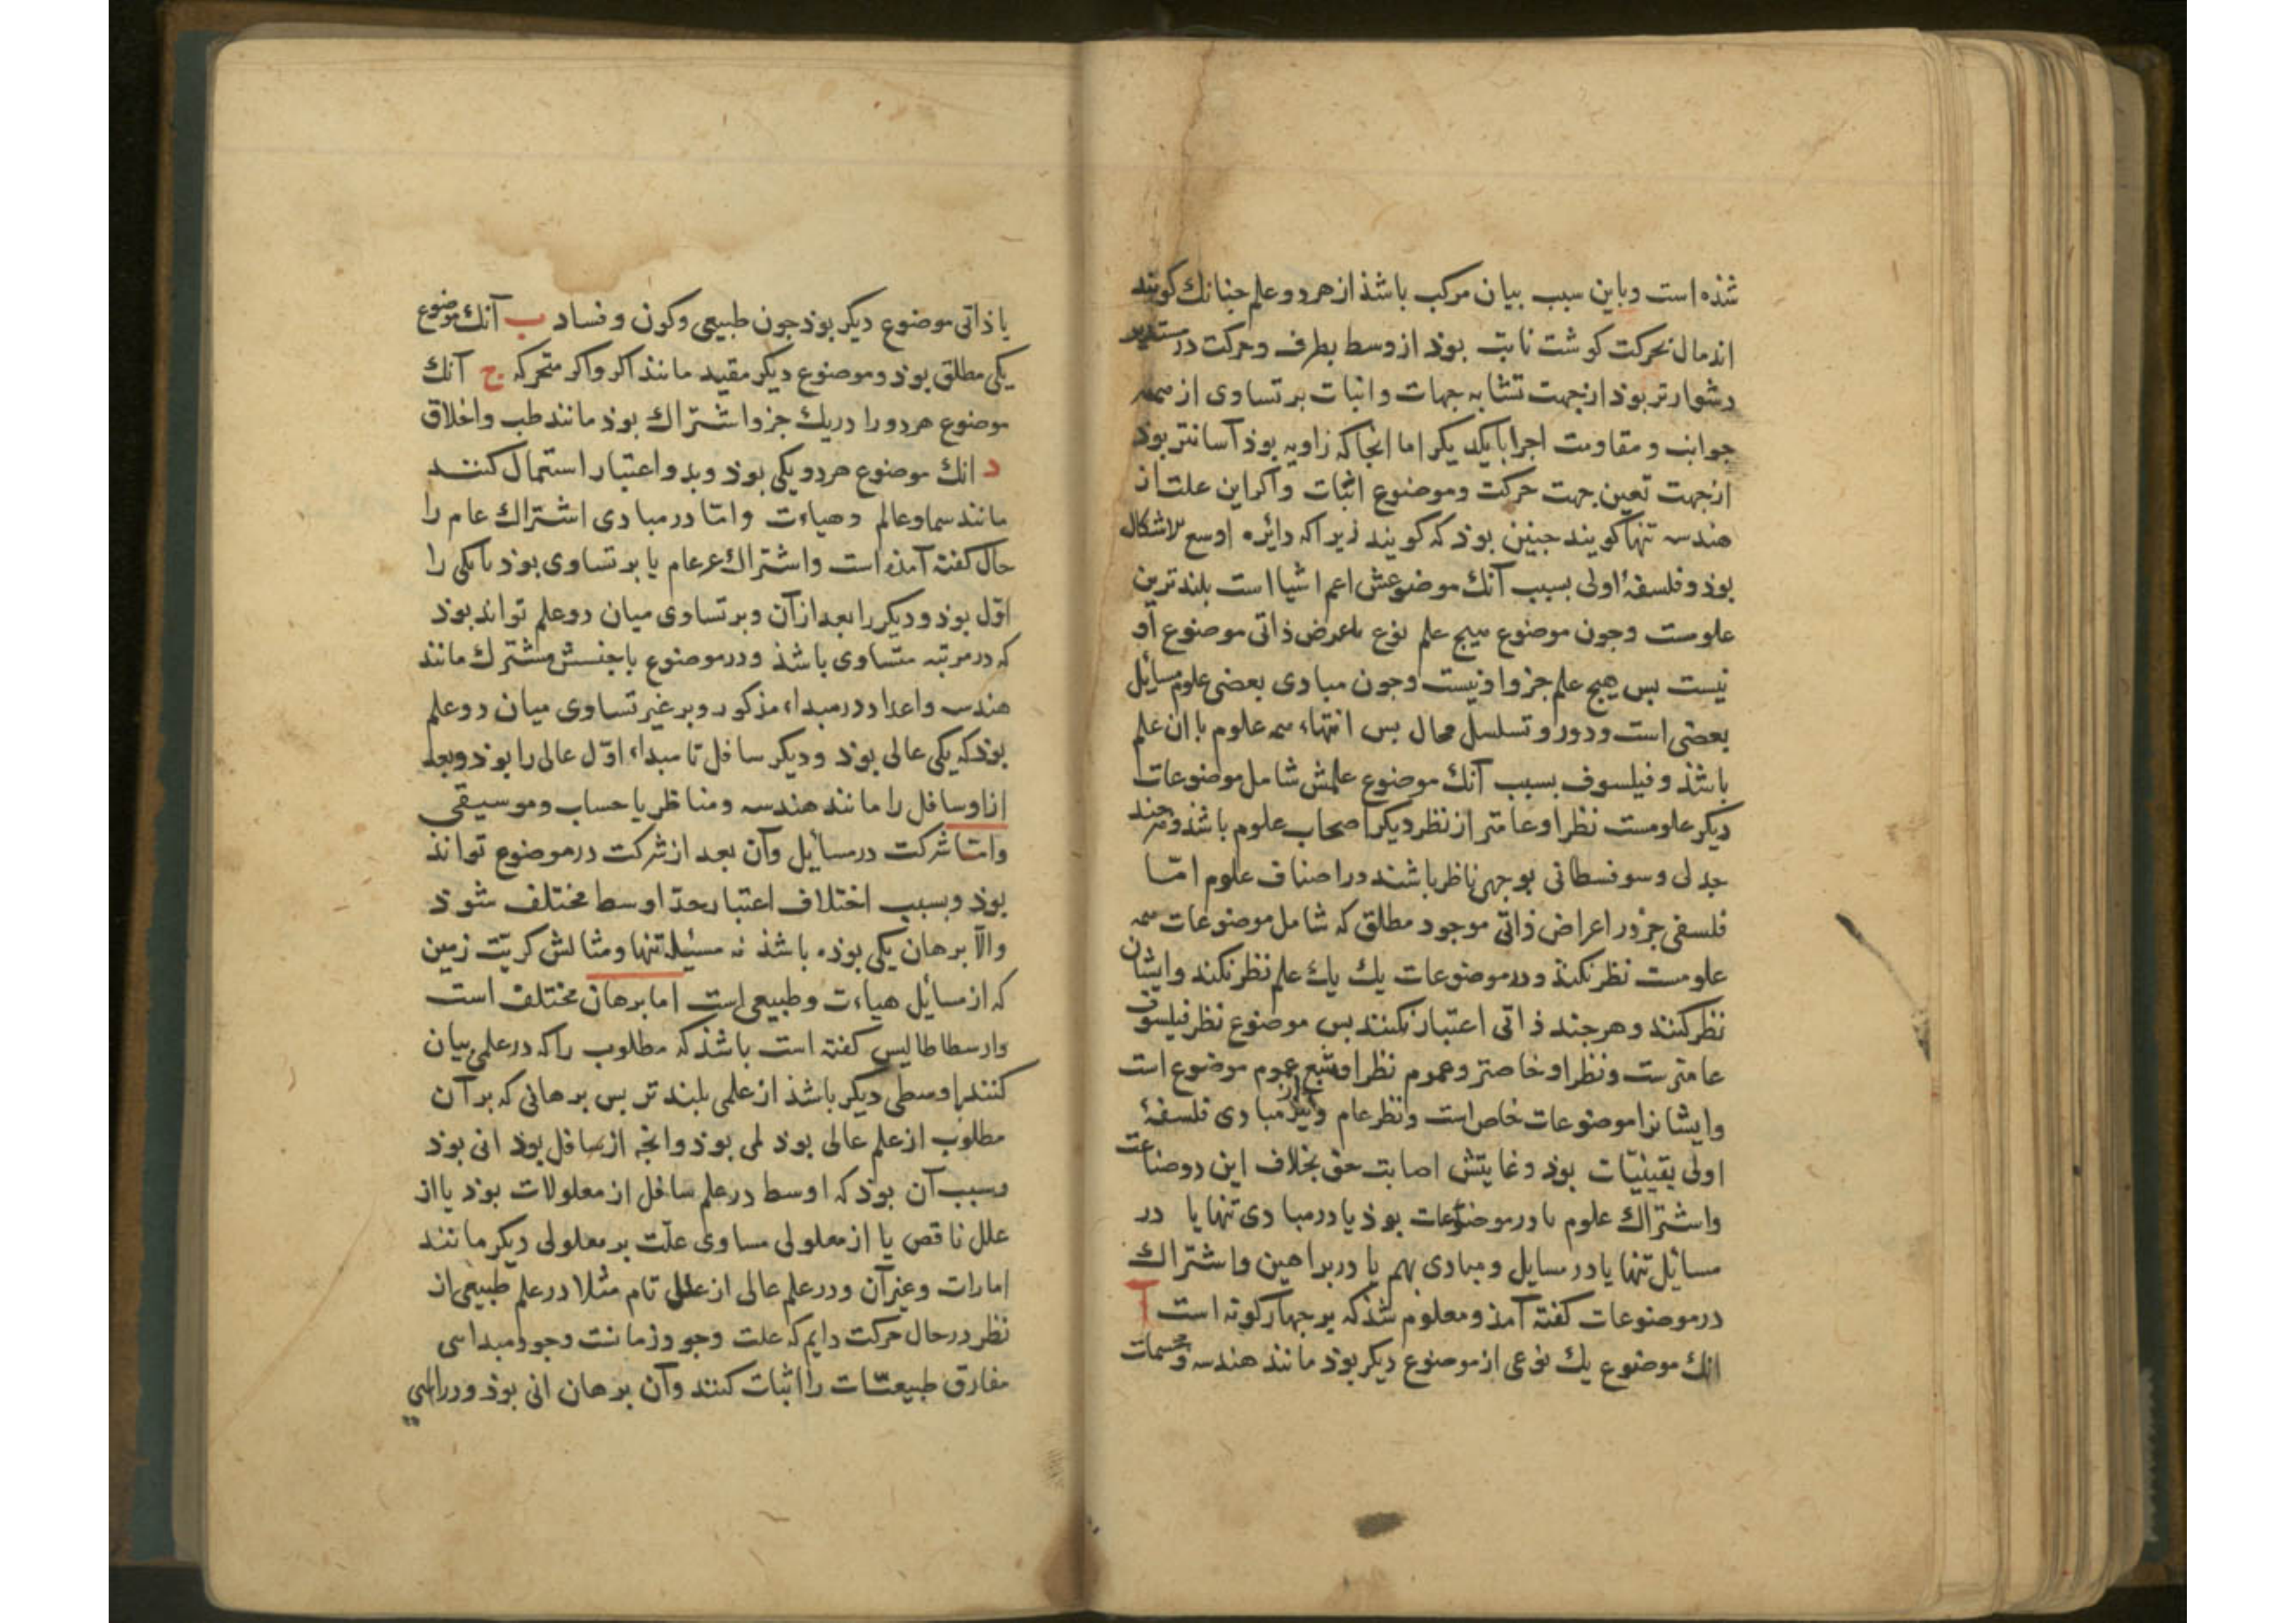 شذه است وباین سبب بیان مرکب باشذ از هر دو علم جنانك کویند
اندمال بحرکت کوشت نابت بوذ از وسط بطرف وحرکت در مستدیر
دشوارتر بوذ از جهت تشابه جهات واثبات بر تساوی از همه
جوانب ومقاومت اجزا با یکدیکر اما انجا که زاویه بوذ آسانتر بوذ
از جهت تعین جهت حرکت وموضوع اثبات واکر این علت از
هندسه تنها کویند جنین بوذ که کویند زیرا که دائره اوسع الاشکال
بوذ وفلسفهٔ اولی بسبب آنك موضوعش اعم اشیا است بلندترین
علومست وجون موضوع هیج علم نوع یا عرض ذاتی موضوع او
نیست بس هیج علم جزو او نیست وجون مبادی بعضی علوم مسائل
بعضی است ودور وتسلسل محال بس انتهاء همه علوم با ان علم
باشذ وفیلسوف بسبب آنك موضوع علمش شامل موضوعات
دیکر علومست نظر او عامتر از نظر دیکر اصحاب علوم باشذ وهرجند
جدلی وسوفسطائی بوجهی ناظر باشند در اصناف علوم امّا
فلسفی جز در اعراض ذاتی موجود مطلق که شامل موضوعات همه
علومست نظر نکند ودر موضوعات یك یك علم نظر نکند وایشان
نظر کنند وهرجند ذاتی اعتبار نکنند بس موضوع نظر فیلسوف
عامترست ونظر او خاصتر وعموم نظر او تبع عموم موضوع است
وایشانرا موضوعات خاص است ونظر عام ونیز مبادی فلسفهٔ
اولی یقینیّات بوذ وغایتش اصابت حق بخلاف این دو صناعت
واشتراك علوم یا در موضوعات بوذ یا در مبادی تنها یا در
مسائل تنها یا در مسایل ومبادی بهم یا در براهین واشتراك
در موضوعات کفته آمذ ومعلوم شذ که بر جهار کونه است آ
انك موضوع یك نوعی از موضوع دیکر بوذ مانند هندسه ومجسمات
یا ذاتی موضوع دیکر بوذ جون طبیعی وکون وفساد ب آنك موضوع
یکی مطلق بوذ وموضوع دیکر مقید مانند اکر واکر متحرکه ج آنك
موضوع هر دو را در یك جزو اشتراك بوذ مانند طب واخلاق
د انك موضوع هر دو یکی بوذ وبدو اعتبار استعمال کنند
مانند سما وعالم وهیاءت وامّا در مبادی اشتراك عام را
حال کفته آمذه است واشتراك غیر عام یا بر تساوی بوذ یا یکی را
اوّل بوذ ودیکر را بعد از آن وبر تساوی میان دو علم تواند بوذ
که در مرتبه متساوی باشذ ودر موضوع با جنسش مشترك مانند
هندسه واعداد در مبداء مذکور وبر غیر تساوی میان دو علم
بوذ که یکی عالی بوذ ودیکر سافل تا مبداء اوّل عالی را بوذ وبعد
از او سافل را مانند هندسه ومناظر یا حساب وموسیقی
وامّا شرکت در مسائل وآن بعد از شرکت در موضوع تواند
بوذ وبسبب اختلاف اعتبار حدّ اوسط مختلف شوذ
والّا برهان یکی بوذه باشذ نه مسئله تنها ومثالش کریّت زمین
که از مسائل هیاءت وطبیعی است اما برهان مختلف است
وارسطاطالیس کفته است باشذ که مطلوب را که در علمی بیان
کنند اوسطی دیکر باشذ از علمی بلندتر بس برهانی که بر آن
مطلوب از علم عالی بوذ لمی بوذ وانجه از سافل بوذ انی بوذ
وسبب آن بوذ که اوسط در علم سافل از معلولات بوذ یا از
علل ناقص یا از معلولی مساوی علّت بر معلولی دیکر مانند
امارات وغیر آن ودر علم عالی از علل تام مثلا در علم طبیعی از
نظر در حال حرکت دایم که علت وجود زمانست وجود مبداءی
مفارق طبیعیّات را اثبات کنند وآن برهان انی بوذ ودر الهی